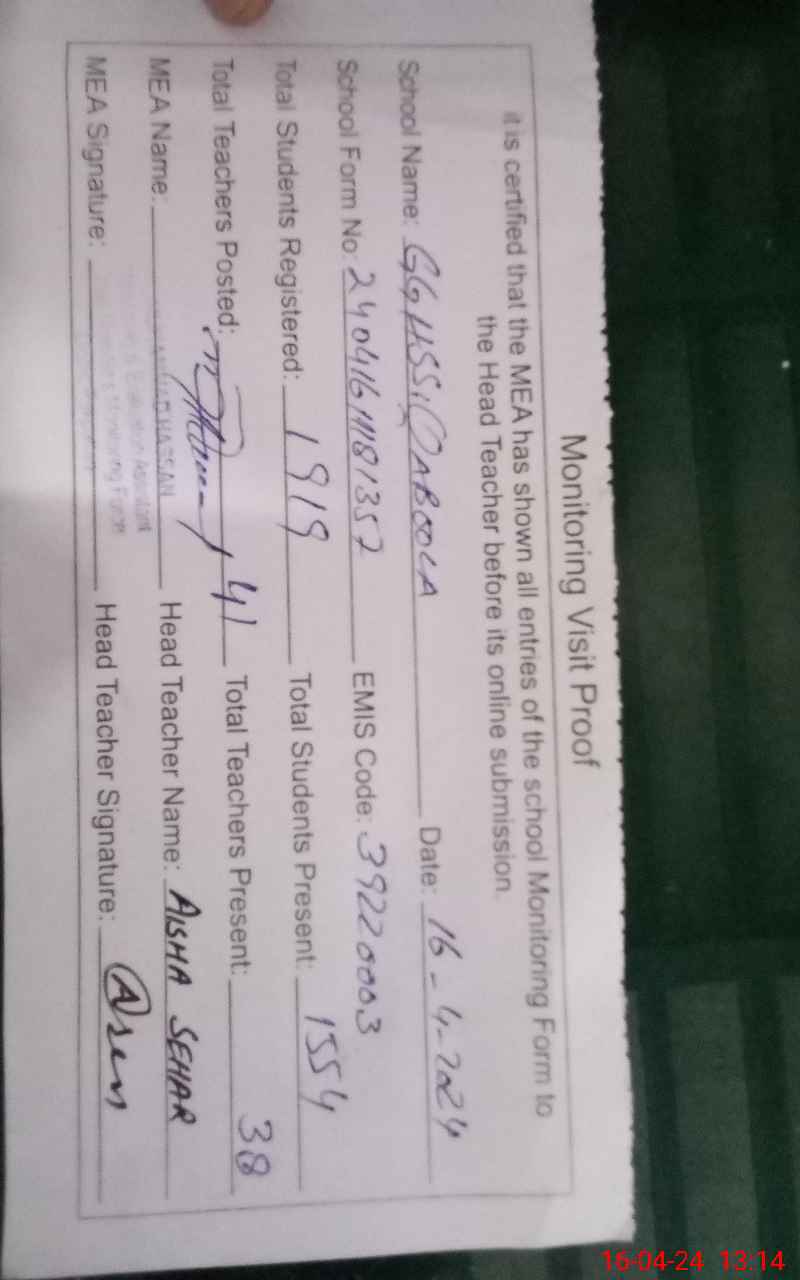 Monitoring Visit Proof
it is certified that the MEA has shown all entries of the school Monitoring Form to
the Head Teacher before its online submission.
School Name: GGHSS, QABOOLA Date: 16-4-2024
School Form No: 24041611181352 EMIS Code: 39220003
Total Students Registered: 1919 Total Students Present: 1554
Total Teachers Posted: 41 Total Teachers Present: 38
MEA Name: HASSAN Head Teacher Name: AISHA SEHAR
MEA Signature: Head Teacher Signature:
Monitoring Force
16-04-24 13:14